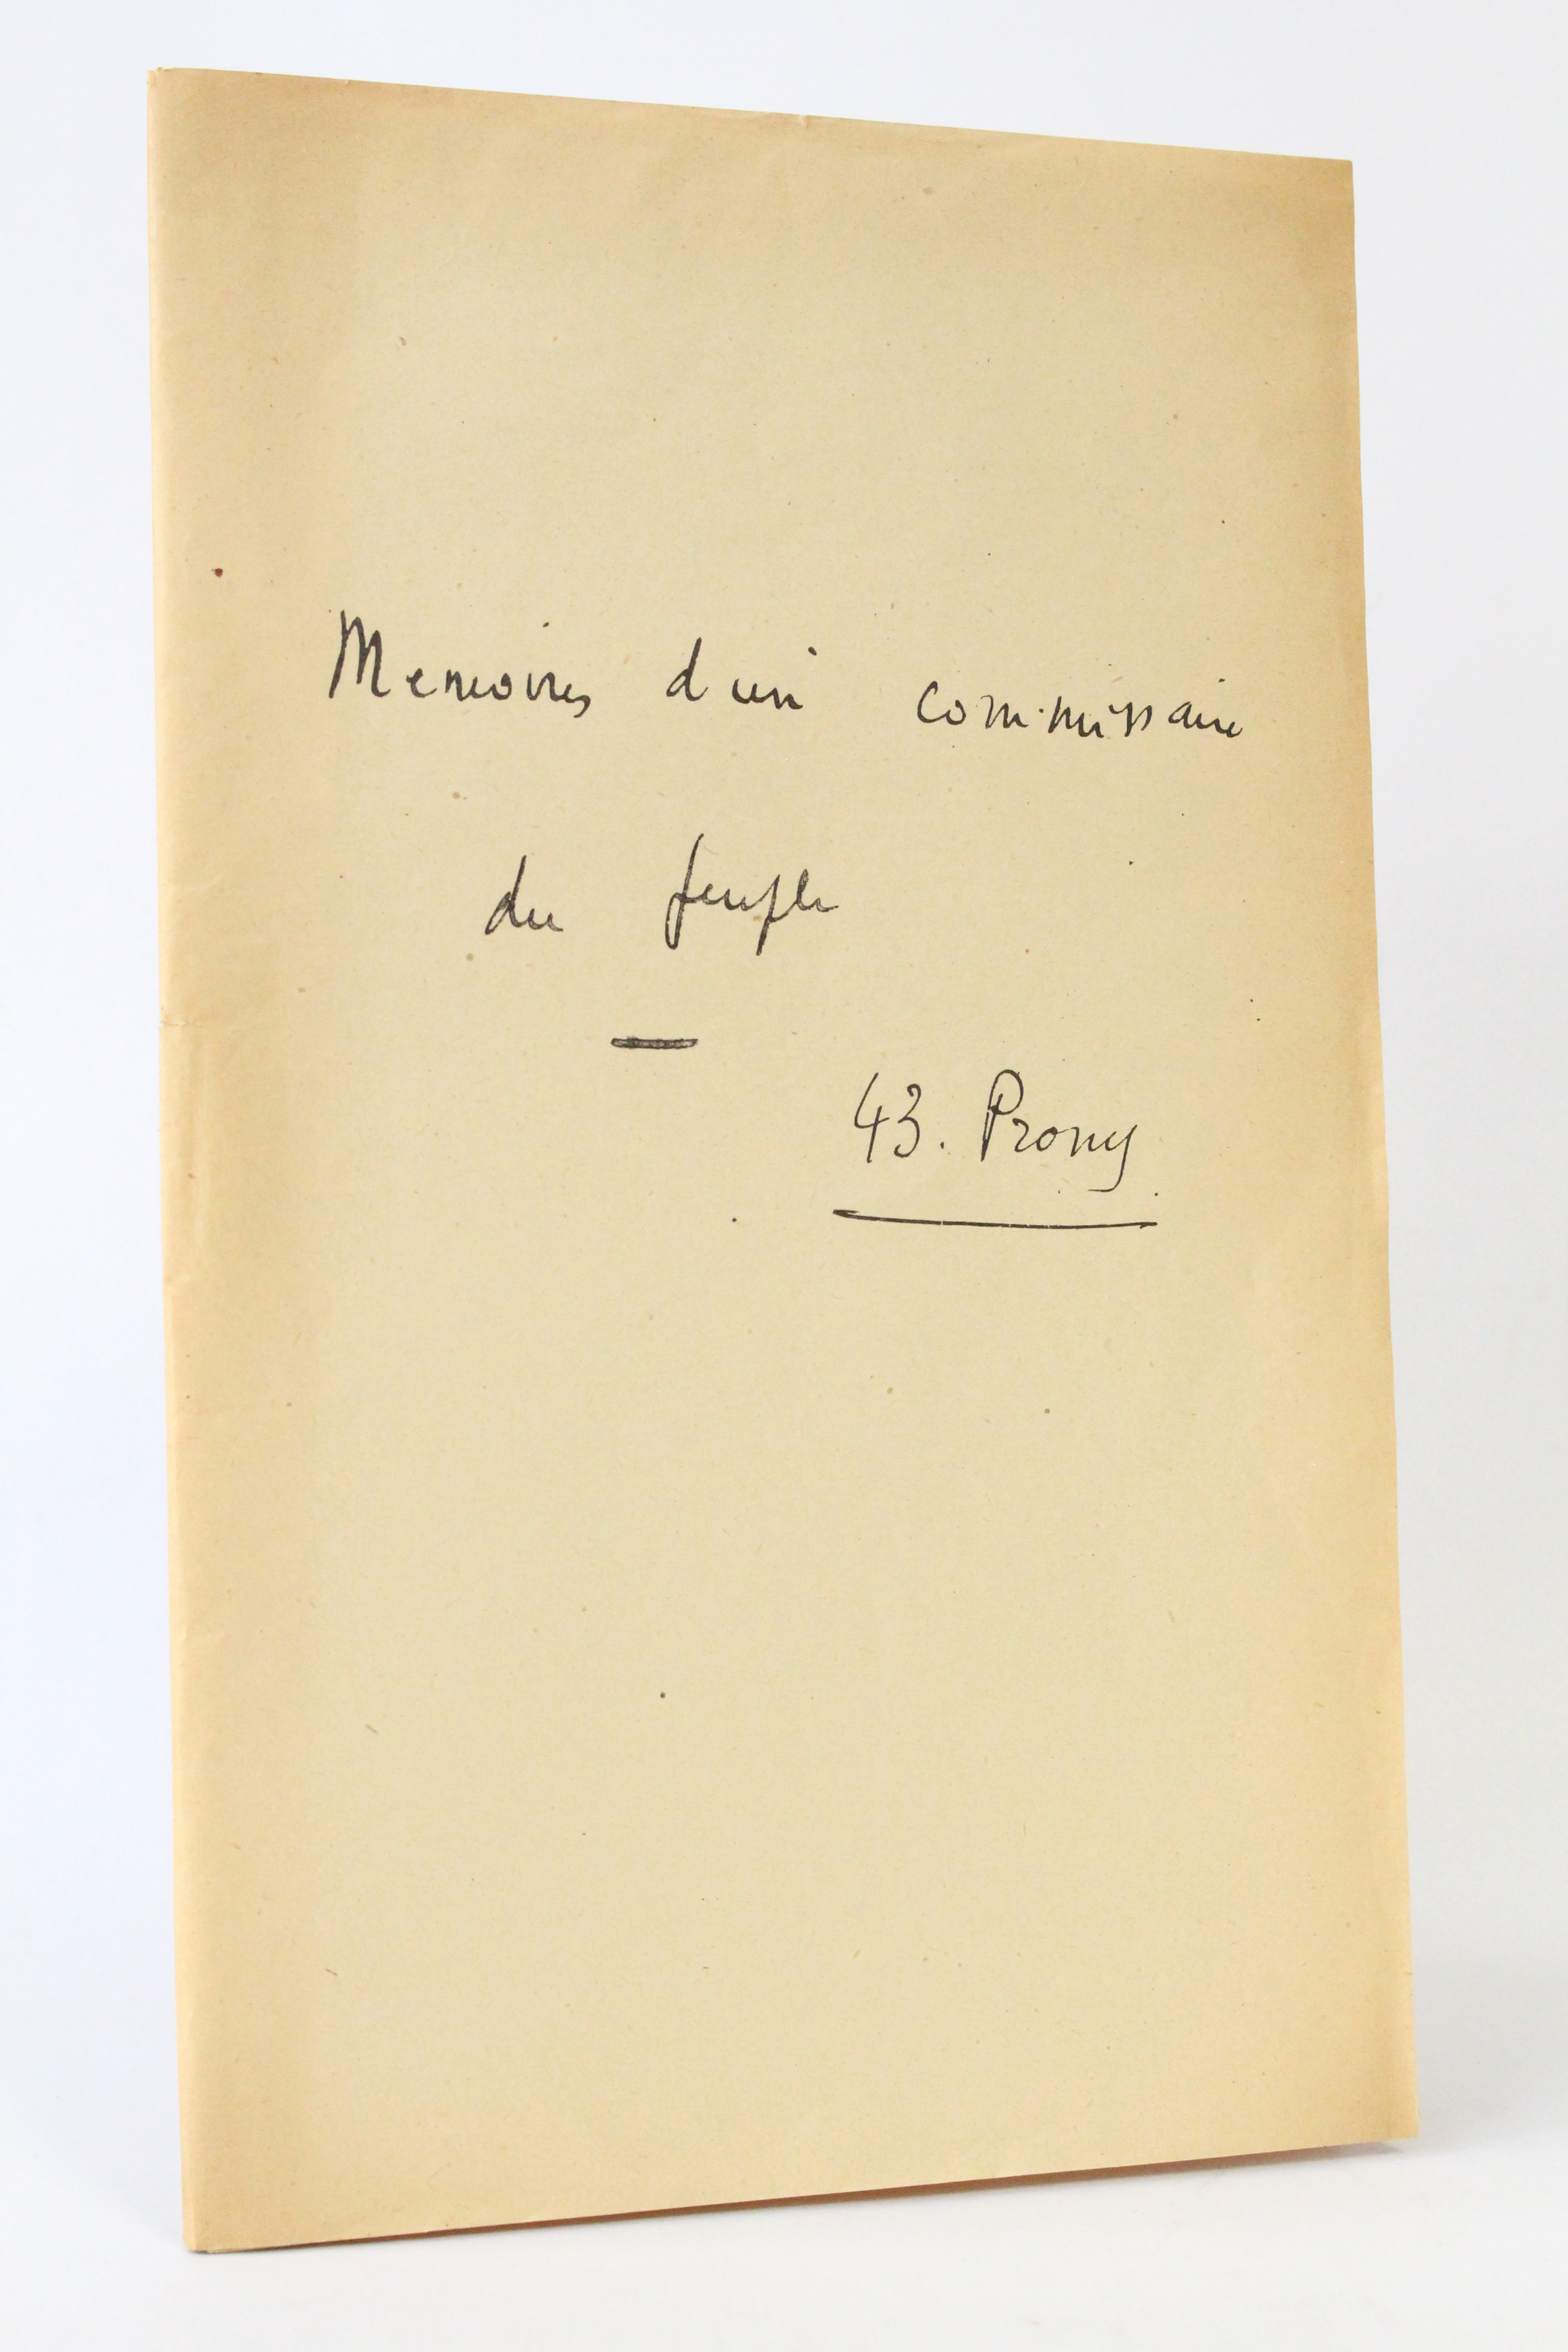 Memoires d'un commissaire
du peuple
43. Prony